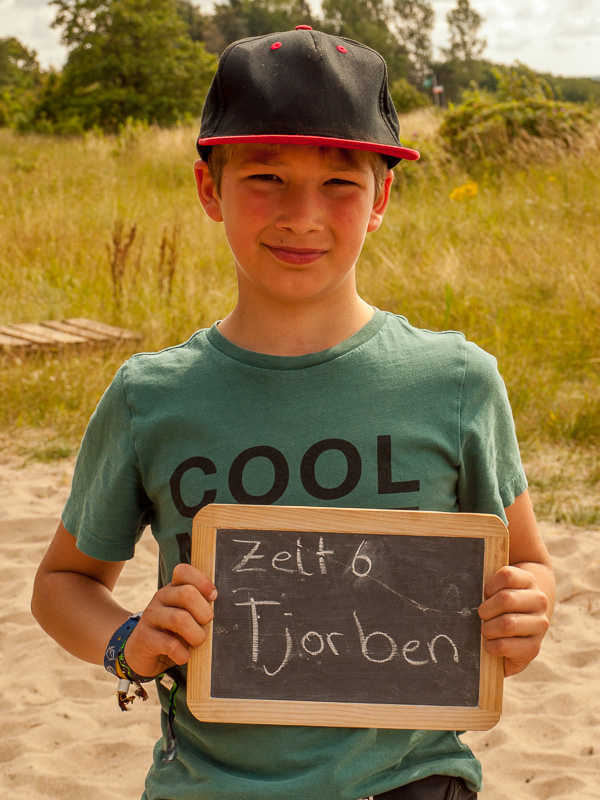 COOL
Zelt 6
Tjorben